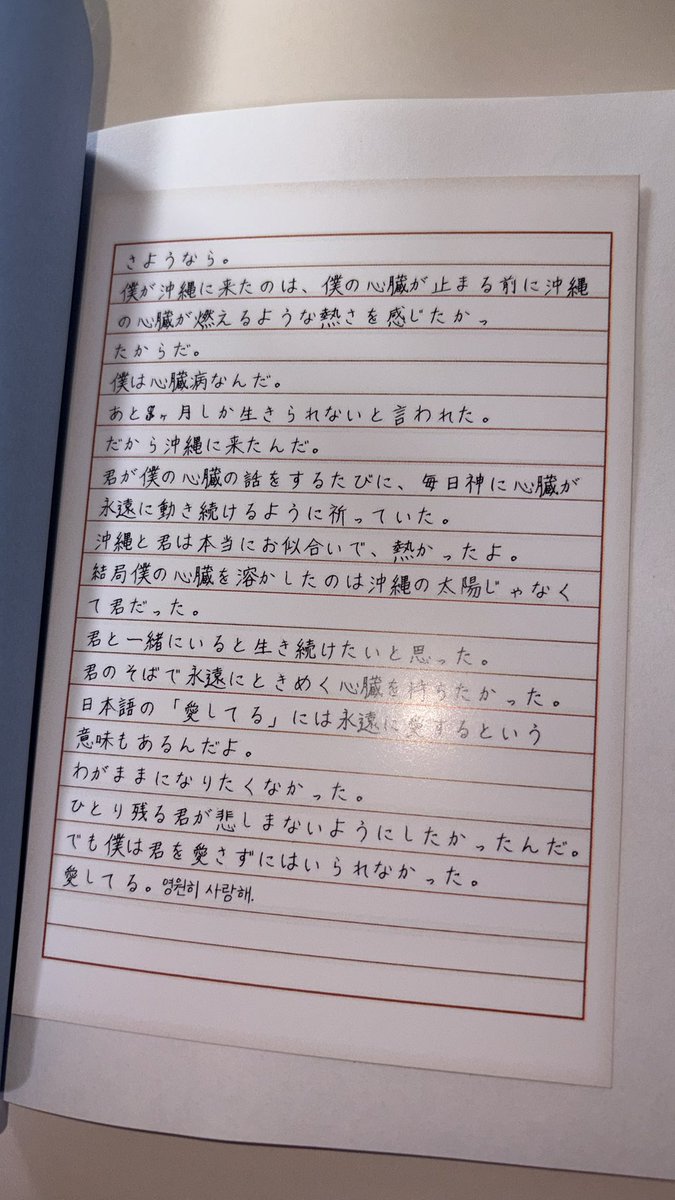 さようなら。
僕が沖縄に来たのは、僕の心臓が止まる前に沖縄
の心臓が燃えるような熱さを感じたかっ
たからだ。
僕は心臓病なんだ。
あと3ヶ月しか生きられないと言われた。
だから沖縄に来たんだ。
君が僕の心臓の話をするたびに、毎日神に心臓が
永遠に動き続けるように祈っていた。
沖縄と君は本当にお似合いで、熱かったよ。
結局僕の心臓を溶かしたのは沖縄の太陽じゃなく
て君だった。
君と一緒にいると生き続けたいと思った。
君のそばで永遠にときめく心臓を持ちたかった。
日本語の「愛してる」には永遠に愛するという
意味もあるんだよ。
わがままになりたくなかった。
ひとり残る君が悲しまないようにしたかったんだ。
でも僕は君を愛さずにはいられなかった。
愛してる。영원히 사랑해.